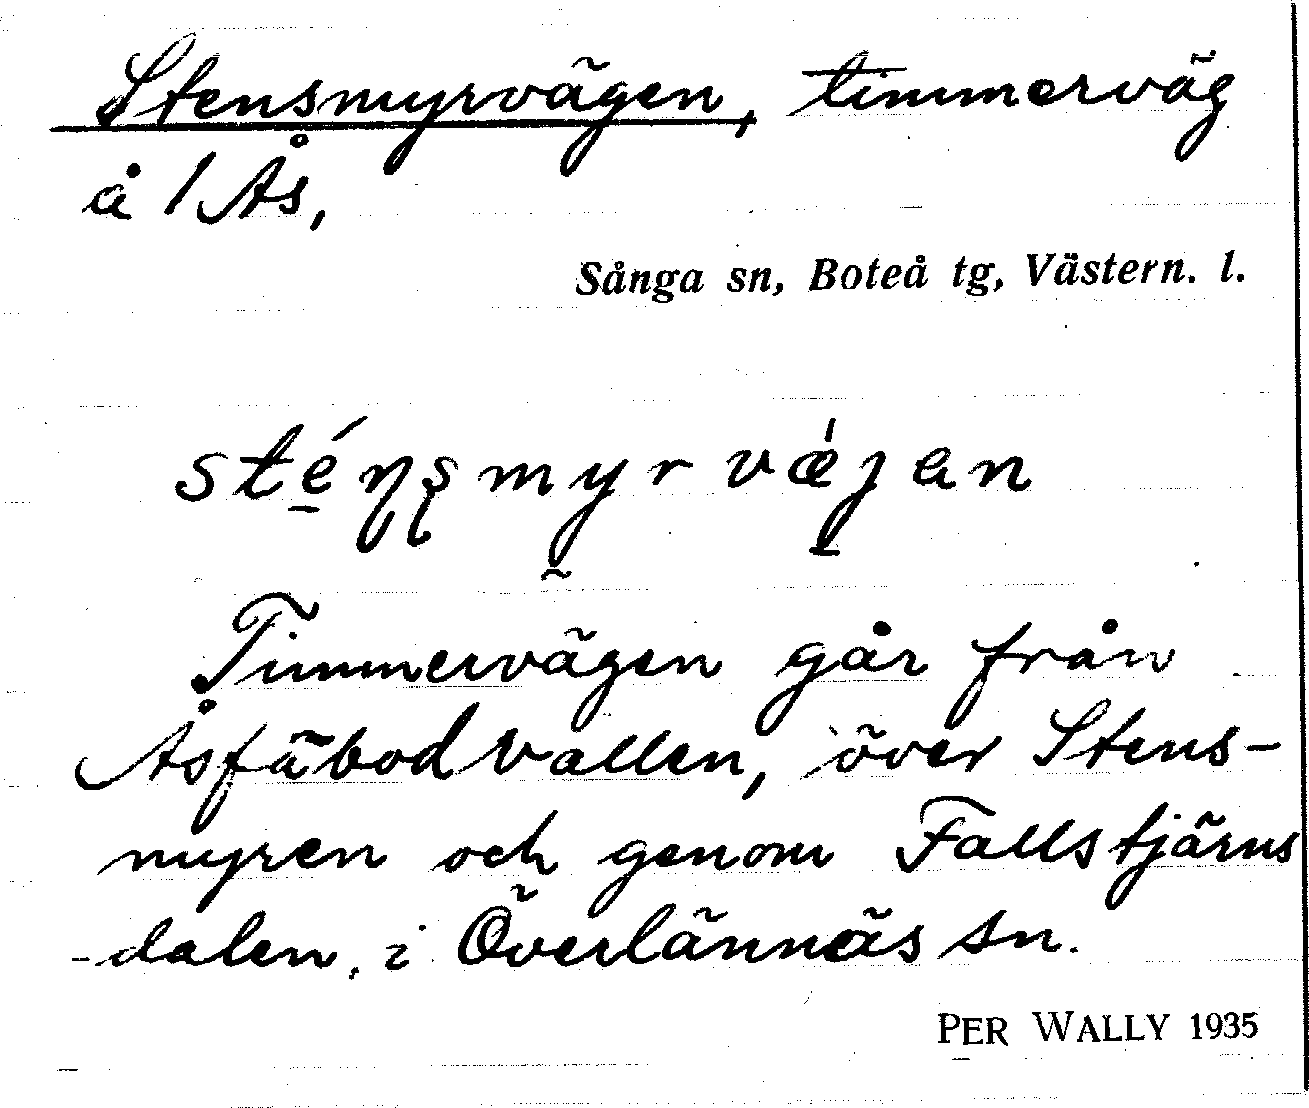 Stensmyrvägen, timmerväg
å 1 Ås,
Sånga sn, Boteå tg, Västern. l.
Timmervägen går från
Åsfäbodvallen, över Stens-
myren och genom Fallstjärns
-dalen, i Överlännäs sn.
PER WALLY 1935